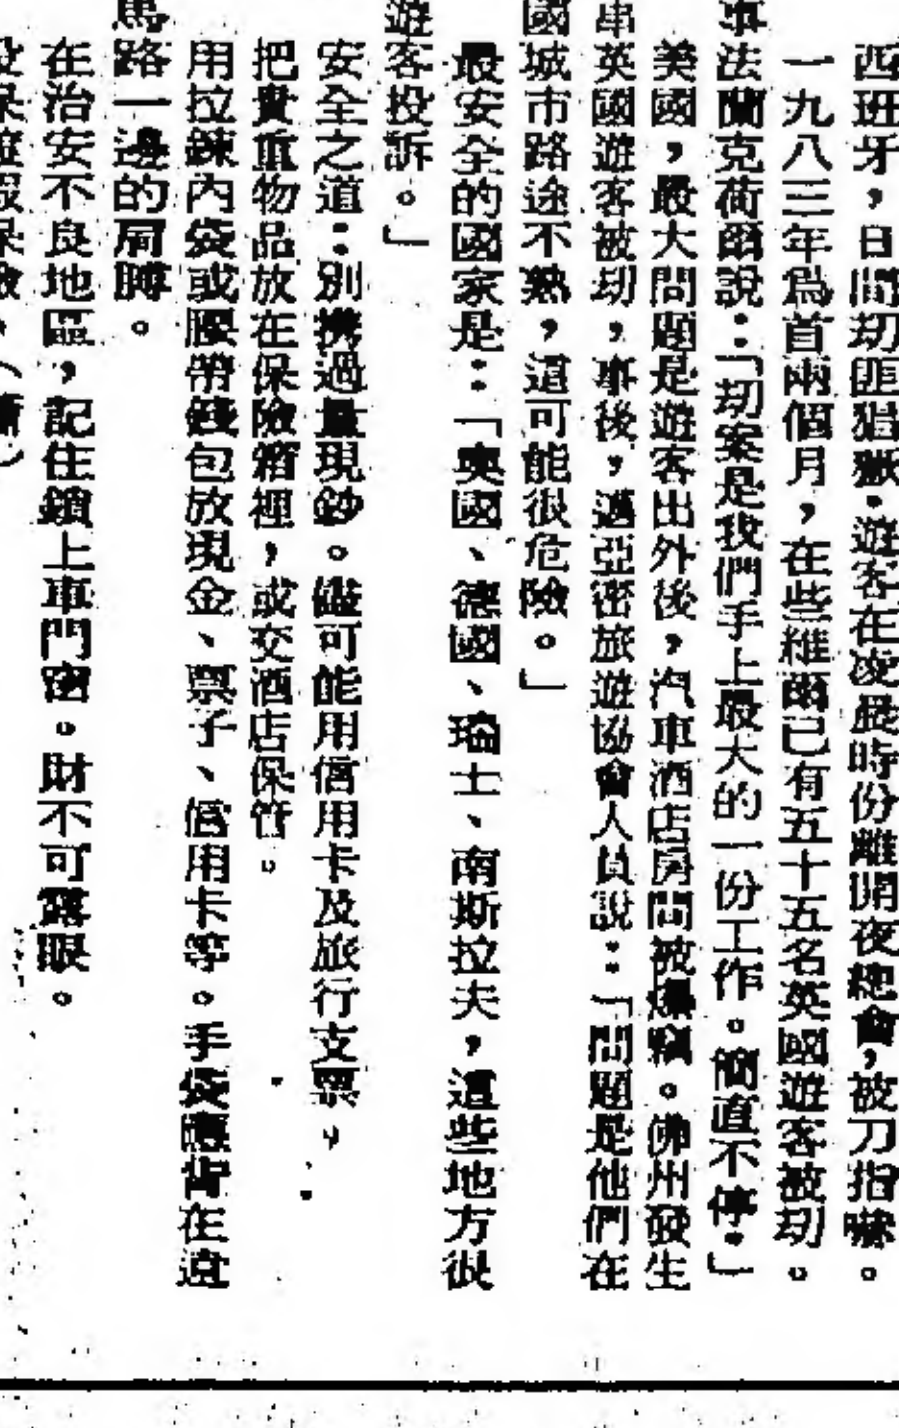 西班牙，日間刧匪猖獗，遊客在凌晨時份離開夜總會，被刀指嚇。
一九八三年爲首兩個月，在些維爾已有五十五名英國遊客被刧。
事法蘭克荷爾說：「刧案是我們手上最大的一份工作。簡直不停。」
美國，最大問題是遊客出外後，汽車酒店房間被爆竊。佛州發生
串英國遊客被刧，事後，邁亞密旅遊協會人員說：「問題是他們在
國城市路途不熟，這可能很危險。」
最安全的國家是：「奧國、德國、瑞士、南斯拉夫，這些地方很
遊客投訴。」
安全之道：別攜過量現鈔。儘可能用信用卡及旅行支票，
把貴重物品放在保險箱裡，或交酒店保管。
用拉鍊內袋或腰帶錢包放現金、票子、信用卡等。手袋應背在遠
馬路一邊的肩膊。
在治安不良地區，記住鎖上車門窗。財不可露眼。